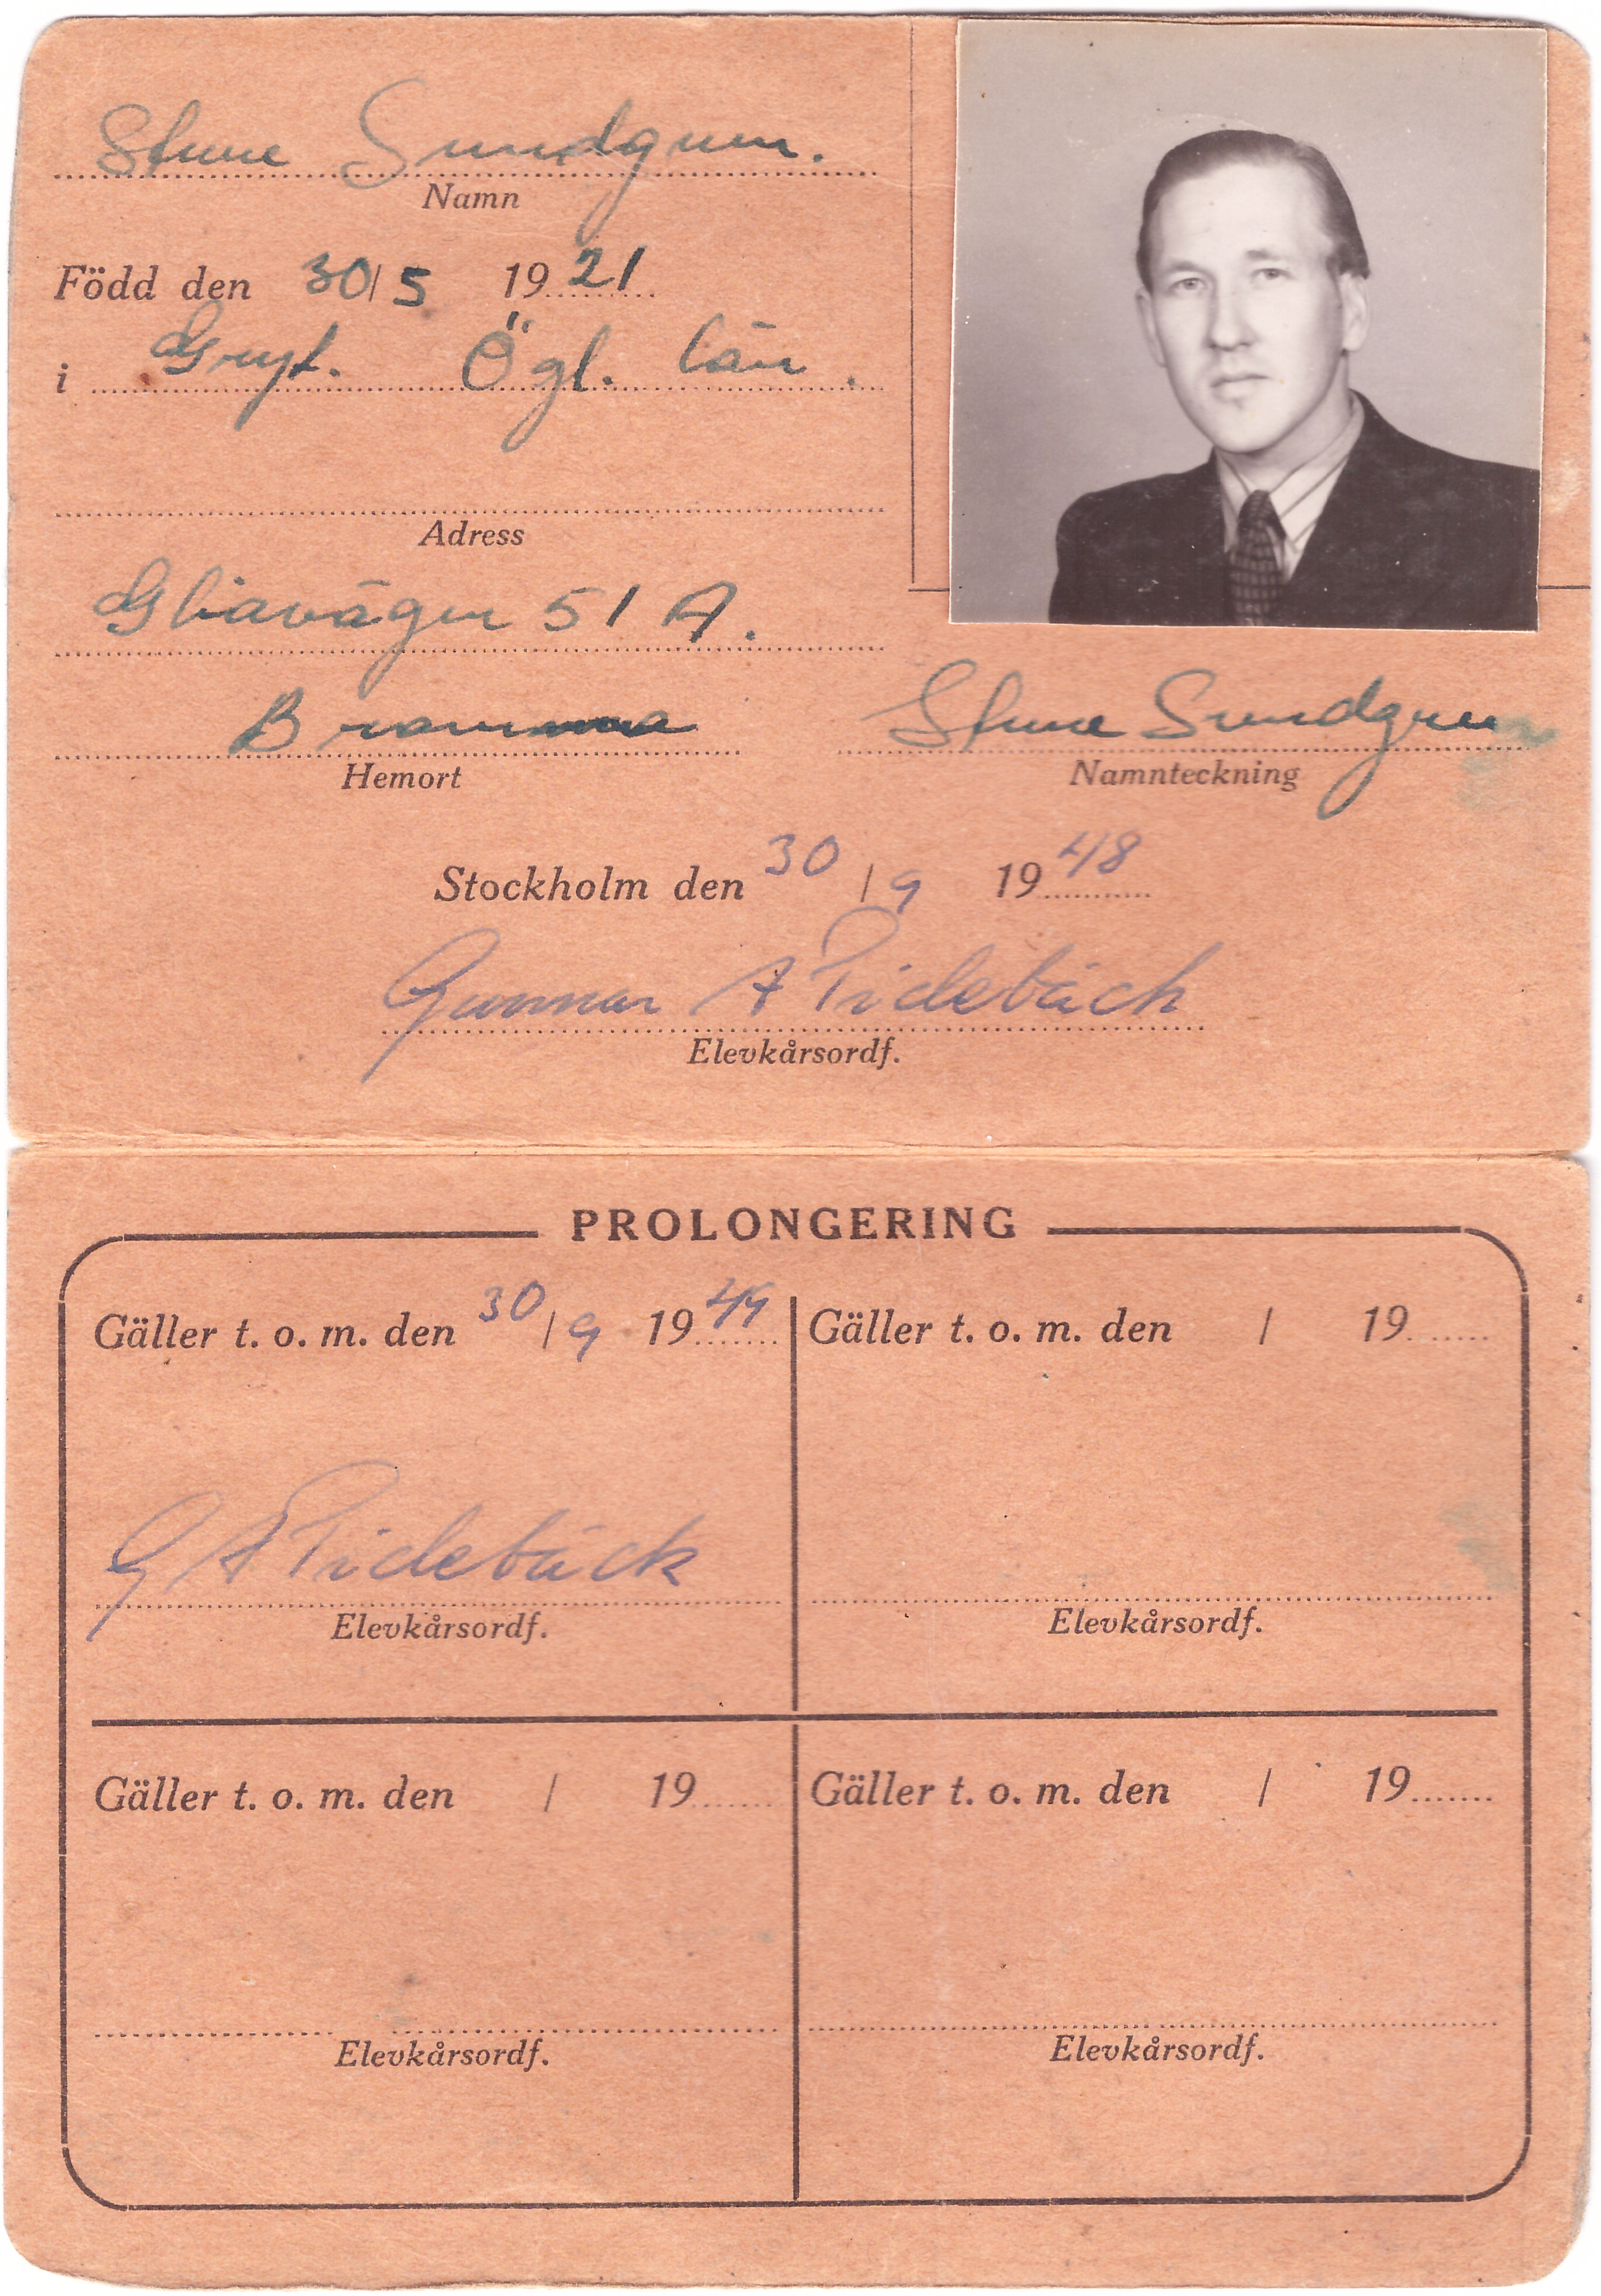 Sture Sundgren.
Namn
Född den 30/5 1921
i Gryt. Ögl. län.
Adress
Gliavägen 51 A.
Bromma
Hemort
Sture Sundgren
Namnteckning
Stockholm den 30/9 1948
Gunnar A Tidebäck
Elevkårsordf.
PROLONGERING
Gäller t. o. m. den 30/9 1949
Gäller t. o. m. den / 19
G A Tidebäck
Elevkårsordf.
Elevkårsordf.
Gäller t. o. m. den / 19
Gäller t. o. m. den / 19
Elevkårsordf.
Elevkårsordf.